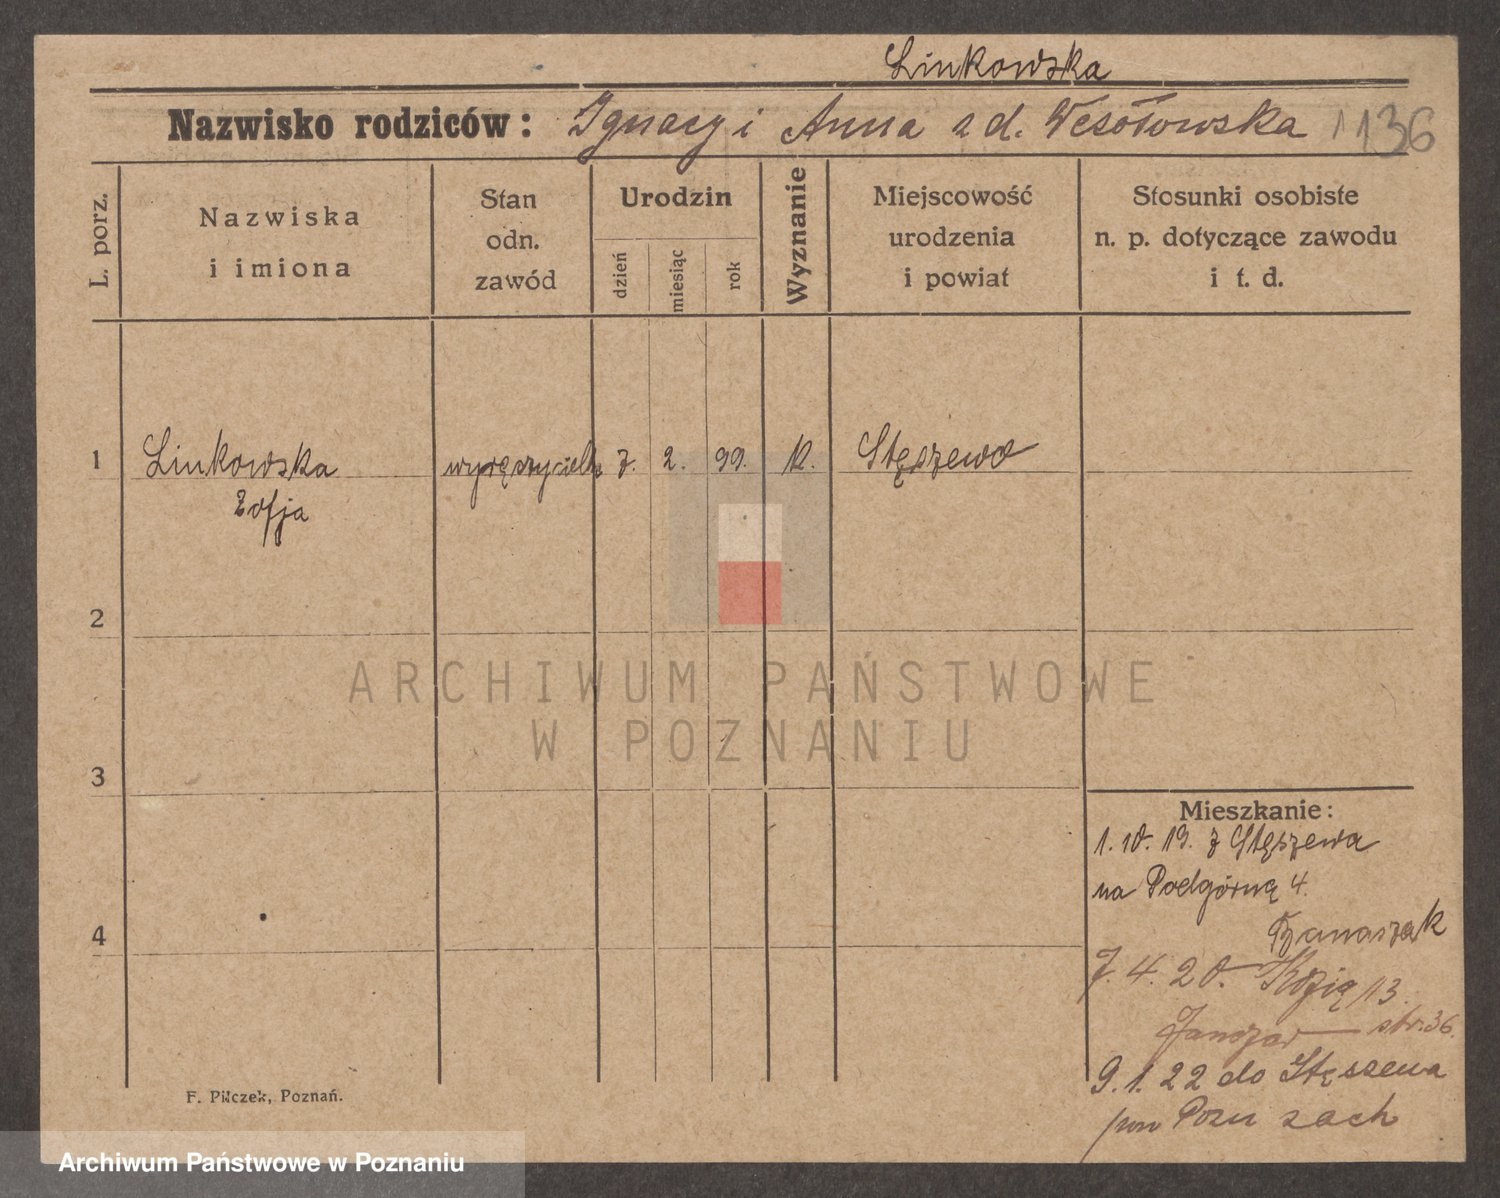 Linkowska
Nazwisko rodziców: Ignacy i Anna z d. Wesołowska 1136
L. porz.
Nazwiska
i imiona
Stan
odn.
zawód
Urodzin
dzień
miesiąc
rok
Wyznanie
Miejscowość
urodzenia
i powiat
Stosunki osobiste
n. p. dotyczące zawodu
i t. d.
1 Linkowska wyręczyciel. 7. 2. 99. K. Stęszewo
Zofja
2
ARCHIWUM PAŃSTWOWE
W POZNANIU
3
Mieszkanie:
1. 10. 19. z Stęszewa
na Podgórną 4.
4
7. 4. 20. Kozią 13
str. 36.
9. 1. 22 do Stęszewa
pow Pozn zach
F. Pilczek, Poznań.
Archiwum Państwowe w Poznaniu